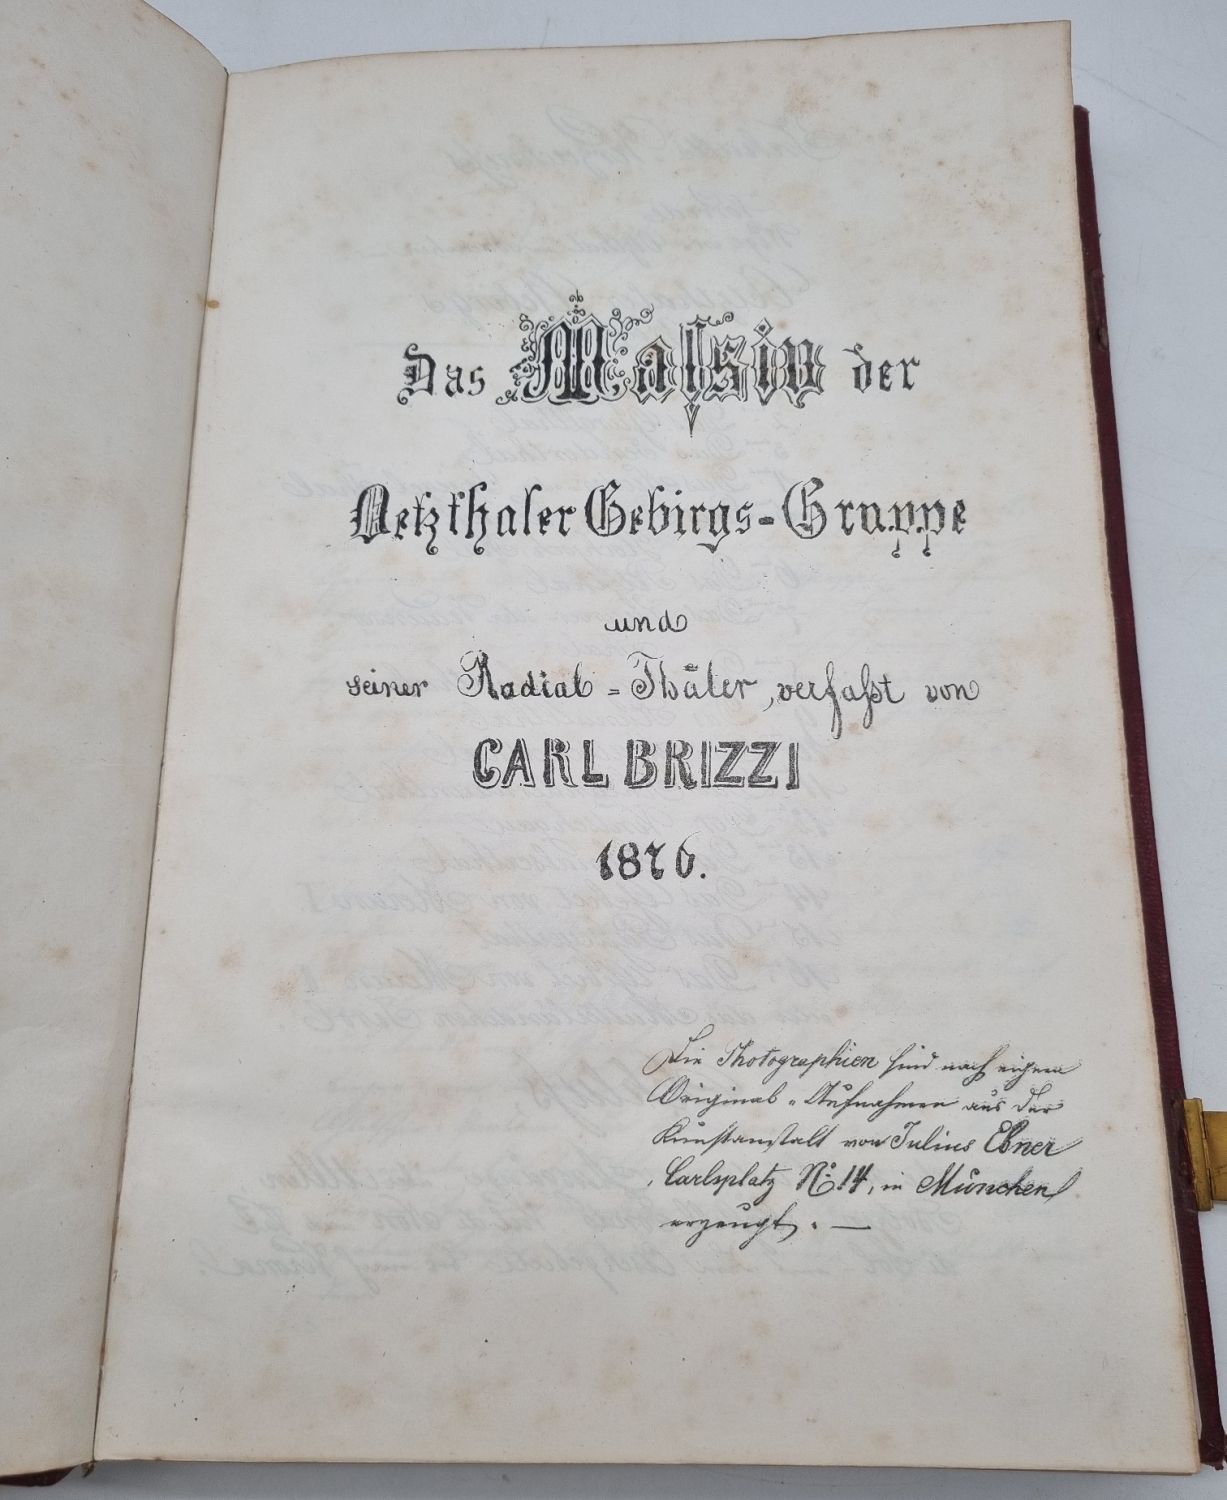 Das Maſsiv der
Oetzthaler Gebirgs-Gruppe
und
seiner Radial-Thäler, verfaßt von
CARL BRIZZI
1876.
Die Photographien sind nach eigenen
Original-Aufnahmen aus der
Kunstanstalt von Julius Ebner
Carlsplatz No. 14, in München
erzeugt. —